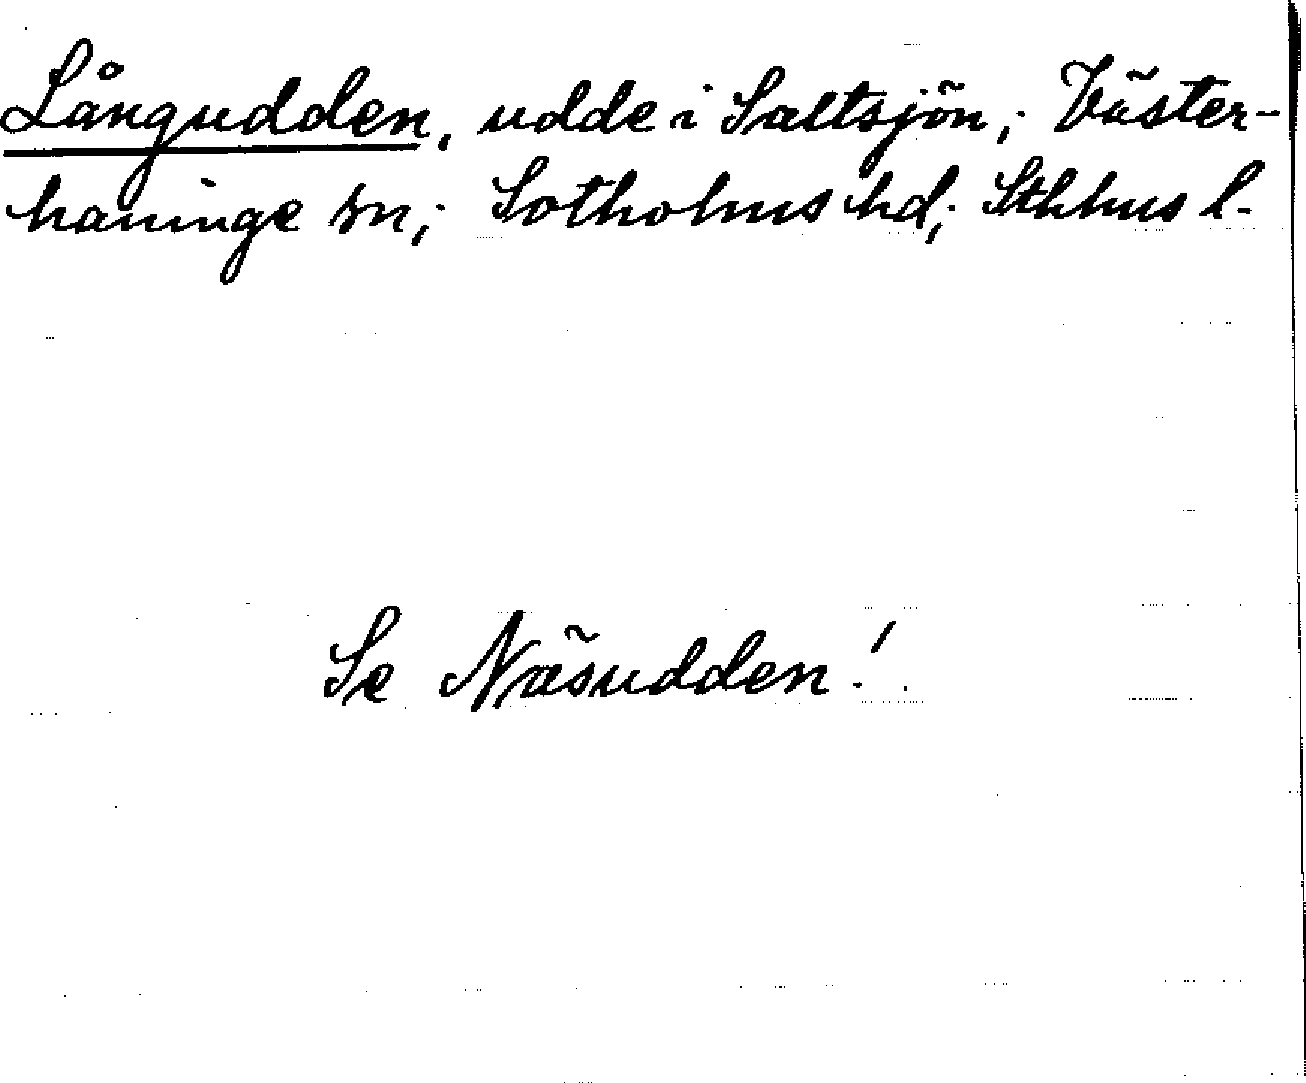 Långudden, udde i Saltsjön; Väster-
haninge sn; Sotholms hd; Sthlms l.
Se Näsudden!